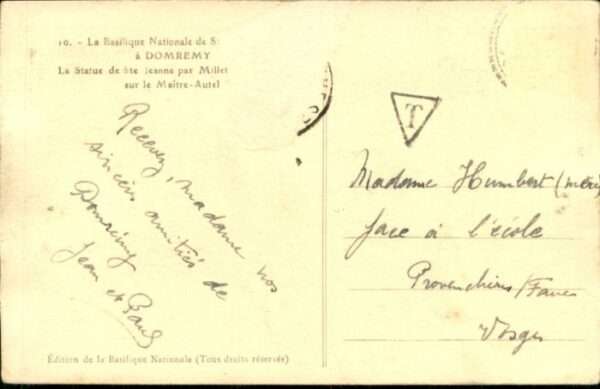 10. - La Basilique Nationale de S
à DOMREMY
La Statue de Ste Jeanne par Millet
sur le Maître-Autel
Recevez, madame nos
sincères amitiés de
Domrémy
Jean et
T
Madame Humbert (mère)
face à l'école
Provenchères/Fave
Vosges
Édition de la Basilique Nationale (Tous droits réservés)